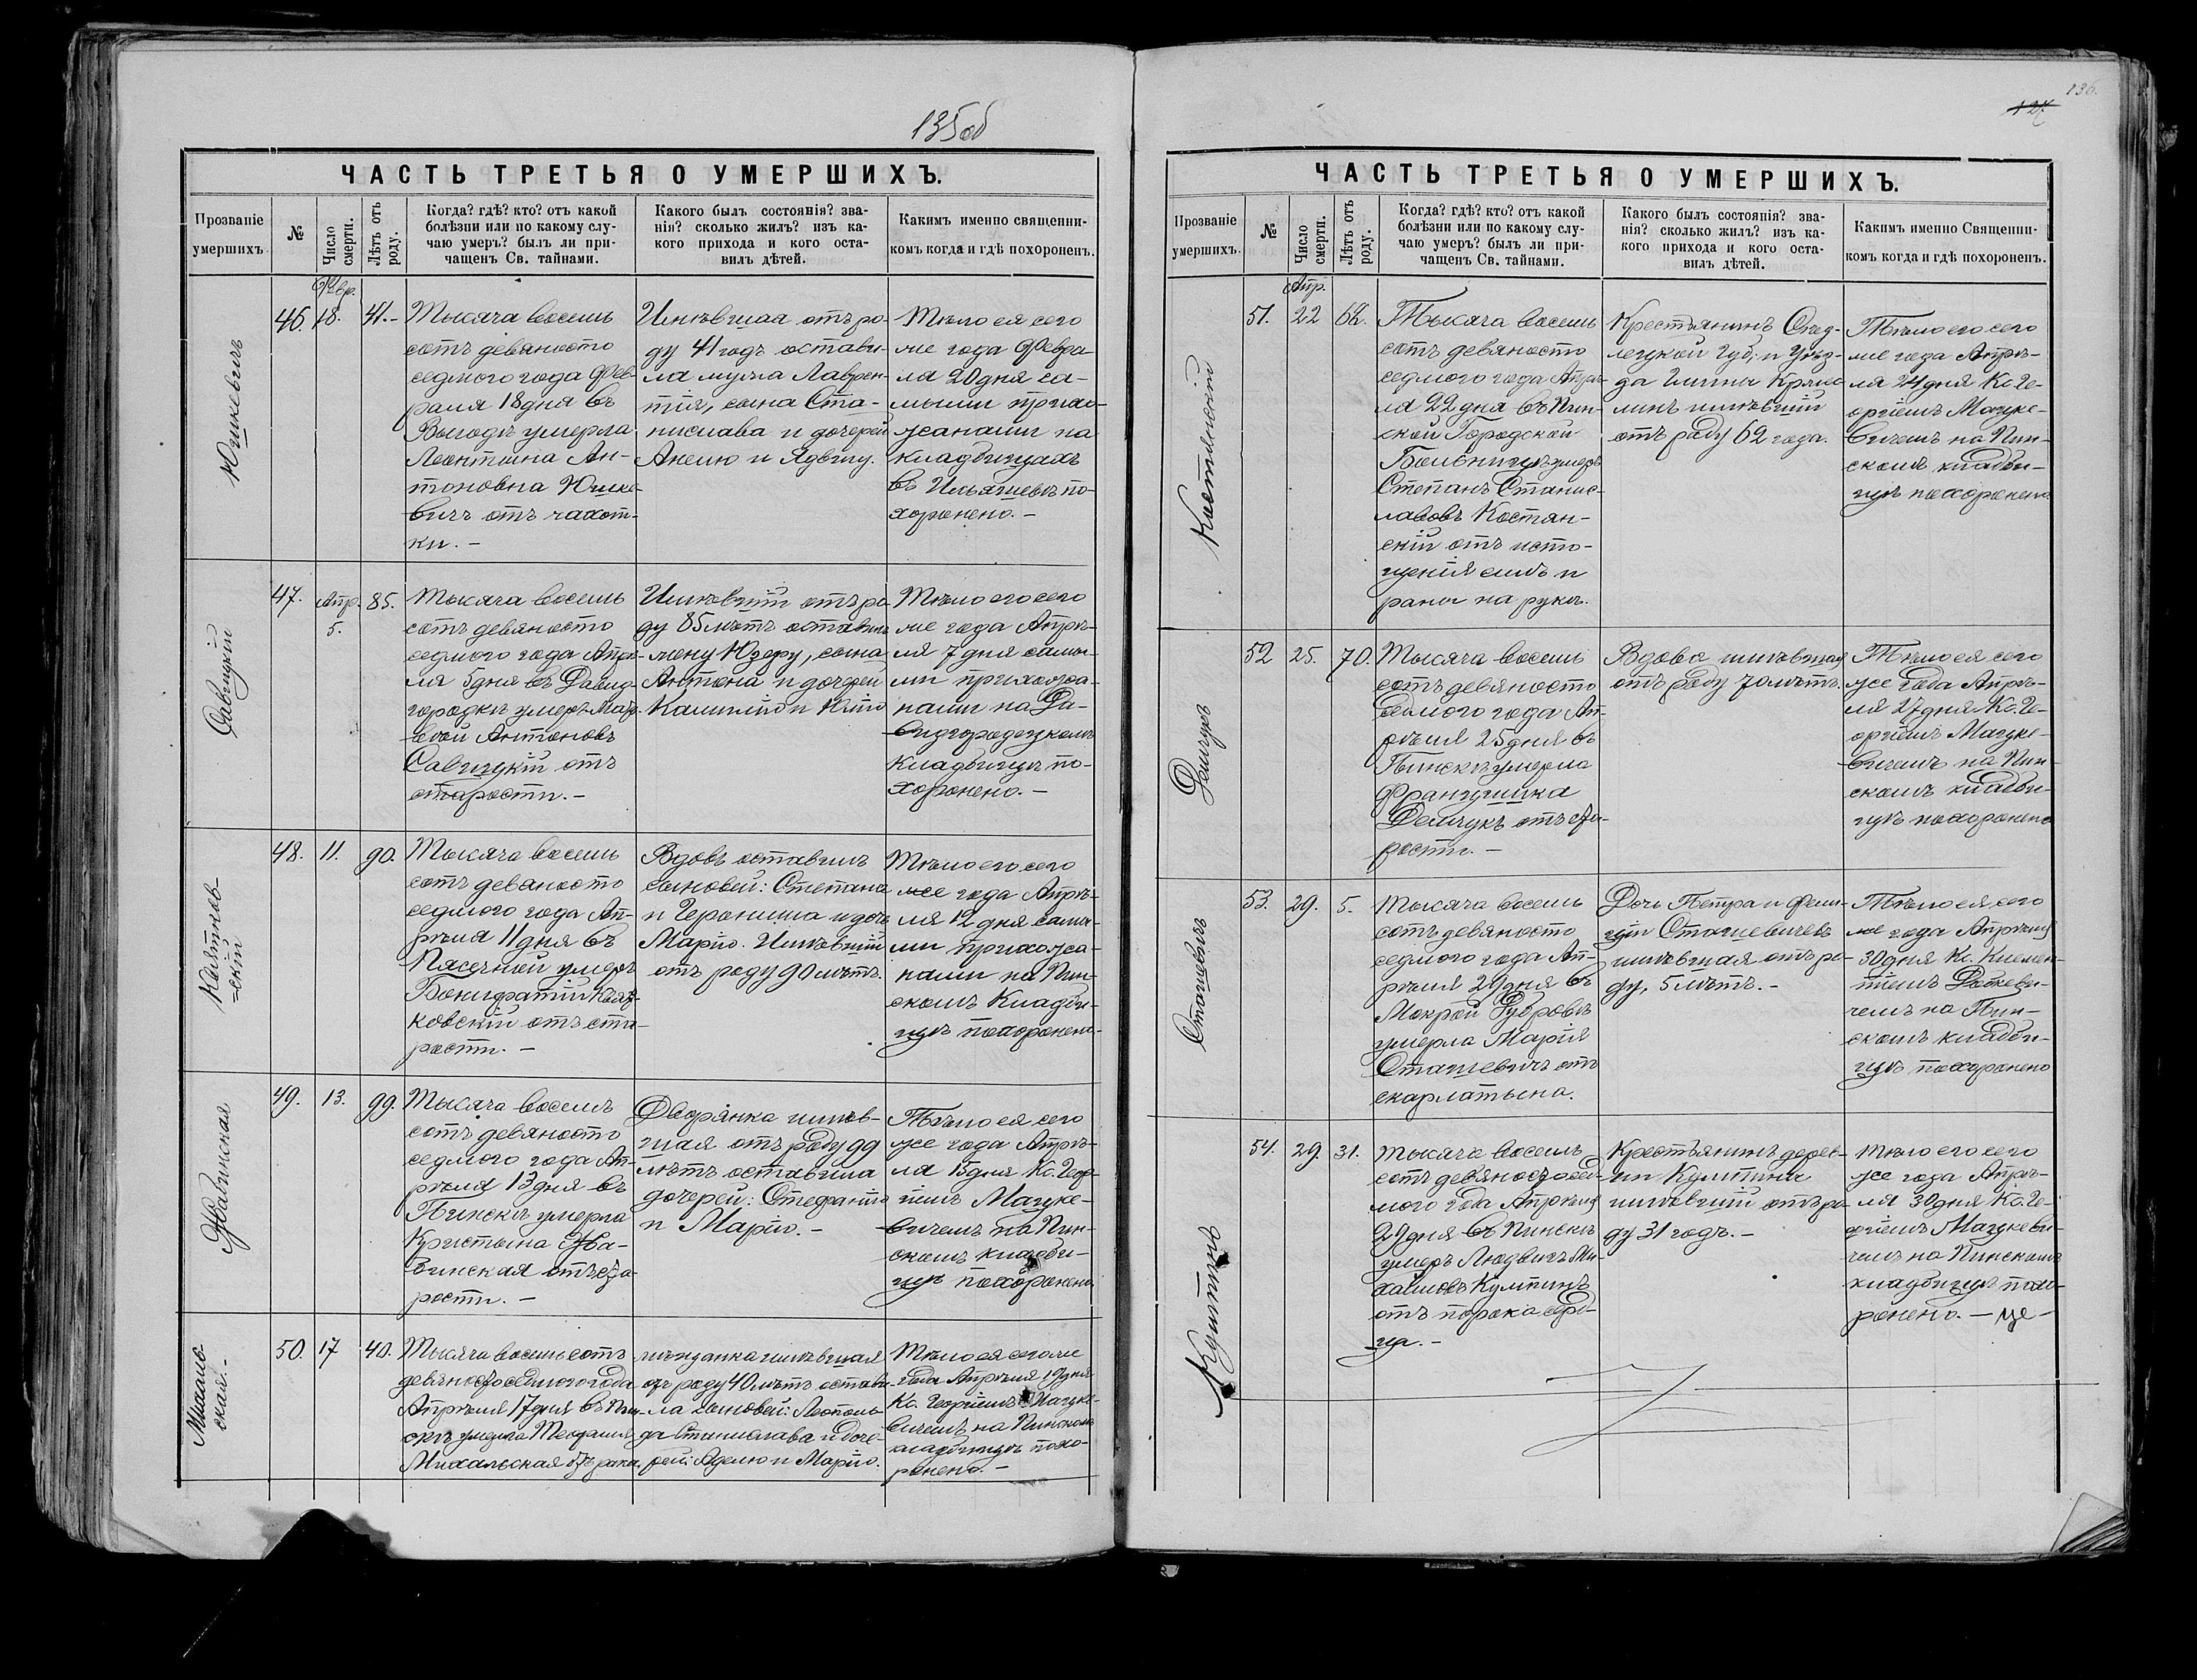 135об
ЧАСТЬ ТРЕТЬЯ О УМЕРШИХЪ.
Прозваніе умершихъ.
№
Число смерти.
Лѣтъ отъ роду.
Когда? гдѣ? кто? отъ какой
болѣзни или по какому слу-
чаю умеръ? былъ ли при-
чащенъ Св. тайнами.
Какого былъ состоянія? зва-
нія? сколько жилъ? изъ ка-
кого прихода и кого оста-
вилъ дѣтей.
Какимъ именно священни-
комъ когда и гдѣ похороненъ.
Юшкевичъ
46.
Февр.
18.
41.-
Тысяча восемь
сотъ девяносто
седмого года Фев-
раля 18 дня въ
Выгодѣ умерла
Леонтина Ан-
тоновна Юшке-
вичъ отъ чахот-
ки. -
Имѣвшая отъ ро-
ду 41 годъ остави-
ла мужа Лаврен-
тія, сына Ста-
нислава и дочерей
Анелю и Ядвигу.
Тѣло ея сего
же года Февра-
ля 20 дня са-
мыми прихо-
жанами на
кладбищахъ
въ по-
хоронено. -
Савицкій
47.
Апр.
5.
85.
Тысяча восемь
сотъ девяносто
седмого года Апрѣ-
ля 5 дня въ Давид-
городкѣ умеръ
Антоновъ
Савицкій отъ
старости. -
Имѣвшій отъ ро-
ду 85 лѣтъ оставилъ
жену Юзефу, сына
Антона и дочерей
Камилію и Юлію
Тѣло его сего
же года Апрѣ-
ля 7 дня самы-
ми прихожа-
нами на Да-
видгородецкомъ
кладбищѣ по-
хоронено. -
Квятков-
=скій
48.
11.
90.
Тысяча восемь
сотъ девяносто
седмого года Ап-
рѣля 11 дня въ
Пясечной умеръ
Бонифатій Квят-
ковскій отъ ста-
рости. -
Вдовъ оставилъ
сыновей: Степана
и Геронима и дочь
Марію. Имѣвшій
отъ роду 90 лѣтъ.
Тѣло его сего
же года Апрѣ-
ля 12 дня самы-
ми прихожа-
нами на Пин-
скомъ кладби-
щѣ похоронено.
49.
13.
99.
Тысяча восемь
сотъ девяносто
седмого года Ап-
рѣля 13 дня въ
Пинскѣ умерла
Кристына
отъ ста-
рости. -
Дворянка имѣв-
шая отъ роду 99
лѣтъ оставила
дочерей: Стефанію
и Марію. -
Тѣло ея сего
же года Апрѣ-
ля 15 дня Кс. Геор-
гіемъ Мацке-
вичемъ на Пин-
скомъ кладби-
щѣ похоронено
Михаль-
ская.-
50.
17
40.
Тысяча восемь сотъ
девяносто седмого года
Апрѣля 17 дня въ Пин-
скѣ умерла Теофилія
Михальская отъ рака.
мѣщанка имѣвшая
отъ роду 40 лѣтъ остави-
ла сыновей: Леополь-
да Станислава и доче-
рей: Аделю и Марію.
Тѣло ея сего же
года Апрѣля 19 дня
Кс. Георгіемъ Мацке-
вичемъ на Пинскомъ
кладбищѣ похо-
ронено. -
136.
127
ЧАСТЬ ТРЕТЬЯ О УМЕРШИХЪ.
Прозваніе умершихъ.
№
Число смерти.
Лѣтъ отъ роду.
Когда? гдѣ? кто? отъ какой
болѣзни или по какому слу-
чаю умеръ? былъ ли при-
чащенъ Св. тайнами.
Какого былъ состоянія? зва-
нія? сколько жилъ? изъ ка-
кого прихода и кого оста-
вилъ дѣтей.
Какимъ именно Священни-
комъ когда и гдѣ похороненъ.
51.
Апр.
22
62.
Тысяча восемь
сотъ девяносто
седмого года Апрѣ-
ля 22 дня въ Пин-
ской Городской
Больницѣ умеръ
Степанъ Станис-
лавовъ Костян-
скій отъ исто-
щенія силъ и
раны на рукѣ.
Крестьянинъ
Губ. и Уѣз-
да Гмины
имѣвшій
отъ роду 62 года.
Тѣло его сего
же года Апрѣ-
ля 24 дня Кс. Ге-
оргіемъ Мацке-
вичемъ на Пин-
скомъ кладби-
щѣ похоронено
Демчукъ
52
25.
70.
Тысяча восемь
сотъ девяносто
седмого года Ап-
рѣля 25 дня въ
Пинскѣ умерла
Францишка
Демчукъ отъ ста-
рости. -
Вдова имѣвшая
отъ роду 70 лѣтъ.
Тѣло ея сего
же года Апрѣ-
ля 27 дня Кс. Ге-
оргіемъ Мацке-
вичемъ на Пин-
скомъ кладби-
щѣ похоронено
Сташевичъ
53.
29.
5.
Тысяча восемь
сотъ девяносто
седмого года Ап-
рѣля 29 дня въ
Мокрой Дубровѣ
умерла Марія
Сташевичъ отъ
скарлатына.
Дочь Петра и Фели-
ціи Сташевичевъ
имѣвшая отъ ро-
ду, 5 лѣтъ. -
Тѣло ея сего
же года Апрѣля
30 дня Кс. Клемен-
тіемъ
чемъ на Пин-
скомъ кладби-
щѣ похоронено
Кулпинъ
54.
29.
31.
Тысяча восемь
сотъ девяносто сед-
мого года Апрѣля
29 дня въ Пинскѣ
умеръ Людвигъ Ми-
хаиловъ Кулпинъ
отъ порока серд-
ца. -
Крестьянинъ дерев-
ни Кулпины
имѣвшій отъ ро-
ду 31 годъ. -
Тѣло его сего
же года Апрѣ-
ля 30 дня Кс. Ге-
оргіемъ Мацкеви-
чемъ на Пинскомъ
кладбищѣ похо-
ронено. -